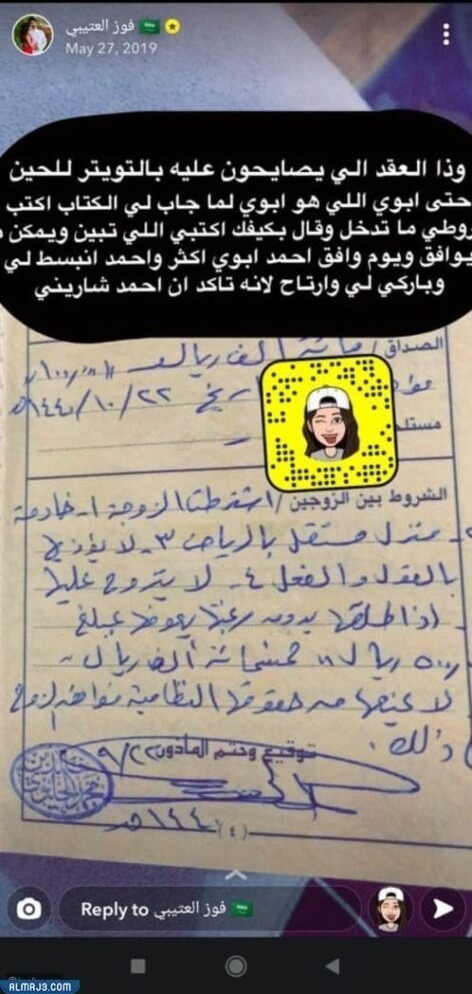 فوز العتيبي
May 27, 2019
وذا العقد الي يصايحون عليه بالتويتر للحين
حتى ابوي اللي هو ابوي لما جاب لي الكتاب اكتب
روطي ما تدخل وقال بكيفك اكتبي اللي تبين ويمكن
يوافق ويوم وافق احمد ابوي اكثر واحمد انبسط لي
وباركي لي وارتاح لانه تاكد ان احمد شاريني
الصداق / مائة الف ريال
١٤٤٠/١٠/٢٢
الشروط بين الزوجين / اشترطت الزوجة ١- خادمة
منزل مستقل بالرياض ٣- لا يؤذيها
بالقول والفعل ٤- لا يتزوج عليها
اذا طلقها بدون رغبتها يعوضها بمبلغ
ريال خمسمائة الف ريال
لا يمنعها من حقوقها النظامية فوافق الزوج
ذلك.
توقيع وختم المأذون
(٤)
Reply to فوز العتيبي
ALMRJ3.COM